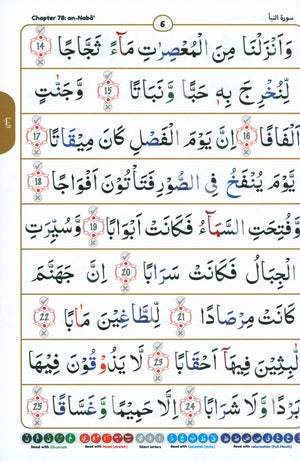 Chapter 78: an-Nabā' 6 سورة النبأ
وَّاَنْزَلْنَا مِنَ الْمُعْصِرٰتِ مَآءً ثَجَّاجًا 14
لِّنُخْرِجَ بِهٖ حَبًّا وَّنَبَاتًا 15 وَّجَنّٰتٍ
اَلْفَافًا 16 اِنَّ يَوْمَ الْفَصْلِ كَانَ مِيْقَاتًا 17
يَّوْمَ يُنْفَخُ فِي الصُّوْرِ فَتَأْتُوْنَ اَفْوَاجًا 18
وَّفُتِحَتِ السَّمَآءُ فَكَانَتْ اَبْوَابًا 19 وَّسُيِّرَتِ
الْجِبَالُ فَكَانَتْ سَرَابًا 20 اِنَّ جَهَنَّمَ
كَانَتْ مِرْصَادًا 21 لِّلطَّاغِيْنَ مَاٰبًا 22
لّٰبِثِيْنَ فِيْهَآ اَحْقَابًا 23 لَا يَذُوْقُوْنَ فِيْهَا
بَرْدًا وَّلَا شَرَابًا 24 اِلَّا حَمِيْمًا وَّغَسَّاقًا 25
Read with Ghunnah Read with Madd (stretch) Silent letters Read with Qalqalah (echo) Read with velarization (Full Mouth)